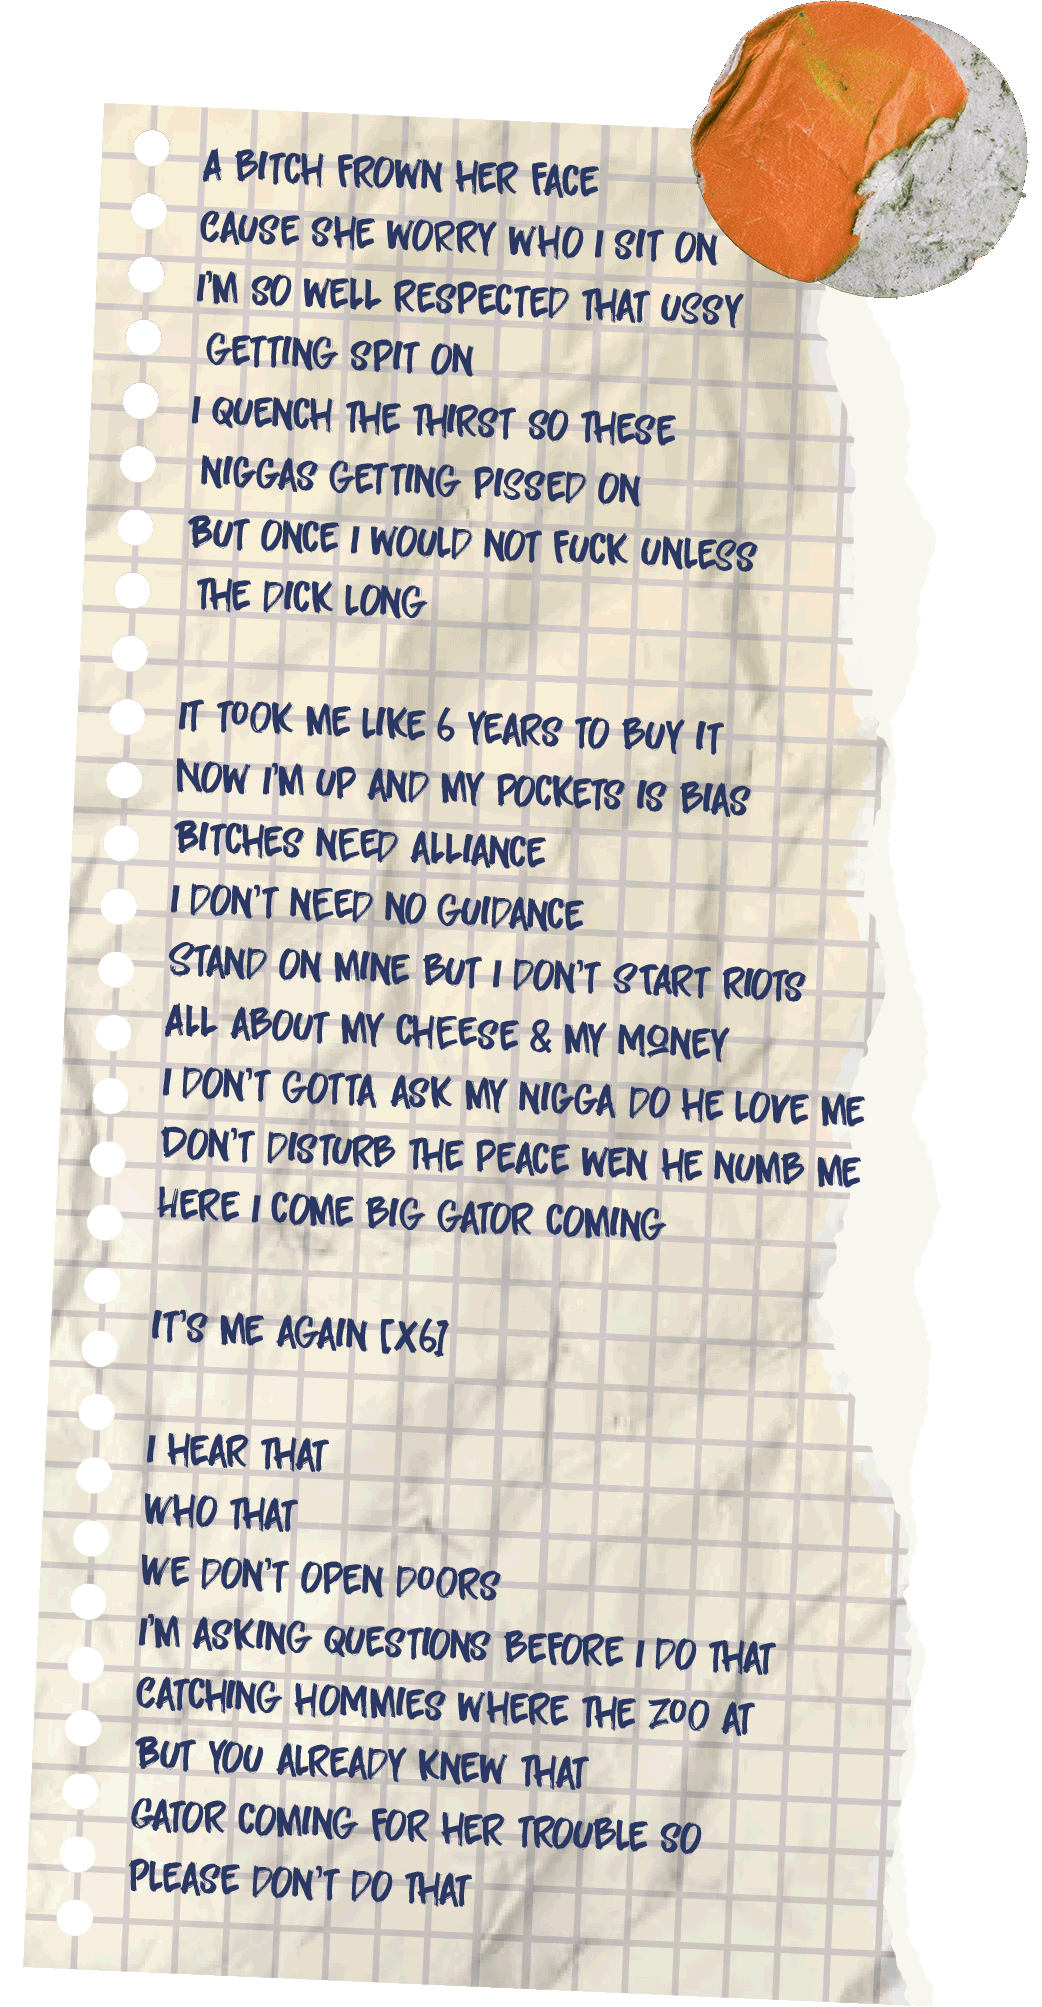 A BITCH FROWN HER FACE
CAUSE SHE WORRY WHO I SIT ON
I'M SO WELL RESPECTED THAT USSY
GETTING SPIT ON
I QUENCH THE THIRST SO THESE
NIGGAS GETTING PISSED ON
BUT ONCE I WOULD NOT FUCK UNLESS
THE DICK LONG
IT TOOK ME LIKE 6 YEARS TO BUY IT
NOW I'M UP AND MY POCKETS IS BIAS
BITCHES NEED ALLIANCE
I DON'T NEED NO GUIDANCE
STAND ON MINE BUT I DON'T START RIOTS
ALL ABOUT MY CHEESE & MY MONEY
I DON'T GOTTA ASK MY NIGGA DO HE LOVE ME
DON'T DISTURB THE PEACE WEN HE NUMB ME
HERE I COME BIG GATOR COMING
IT'S ME AGAIN [X6]
I HEAR THAT
WHO THAT
WE DON'T OPEN DOORS
I'M ASKING QUESTIONS BEFORE I DO THAT
CATCHING HOMMIES WHERE THE ZOO AT
BUT YOU ALREADY KNEW THAT
GATOR COMING FOR HER TROUBLE SO
PLEASE DON'T DO THAT